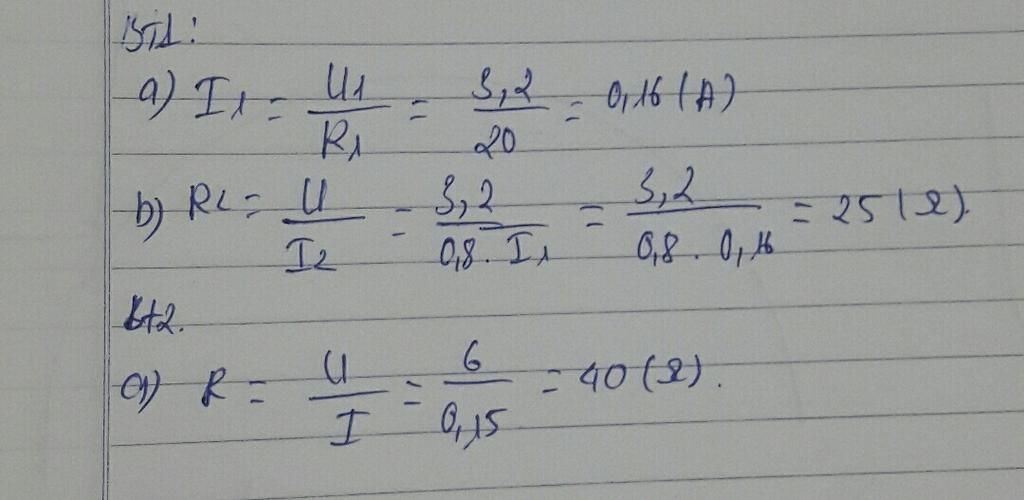 BT1:
a) I1 = U1/R1 = 3,2/20 = 0,16 (A)
b) R2 = U/I2 = 3,2/0,8 . I1 = 3,2/0,8 . 0,16 = 25 (Ω).
bt2.
a) R = U/I = 6/0,15 = 40 (Ω).